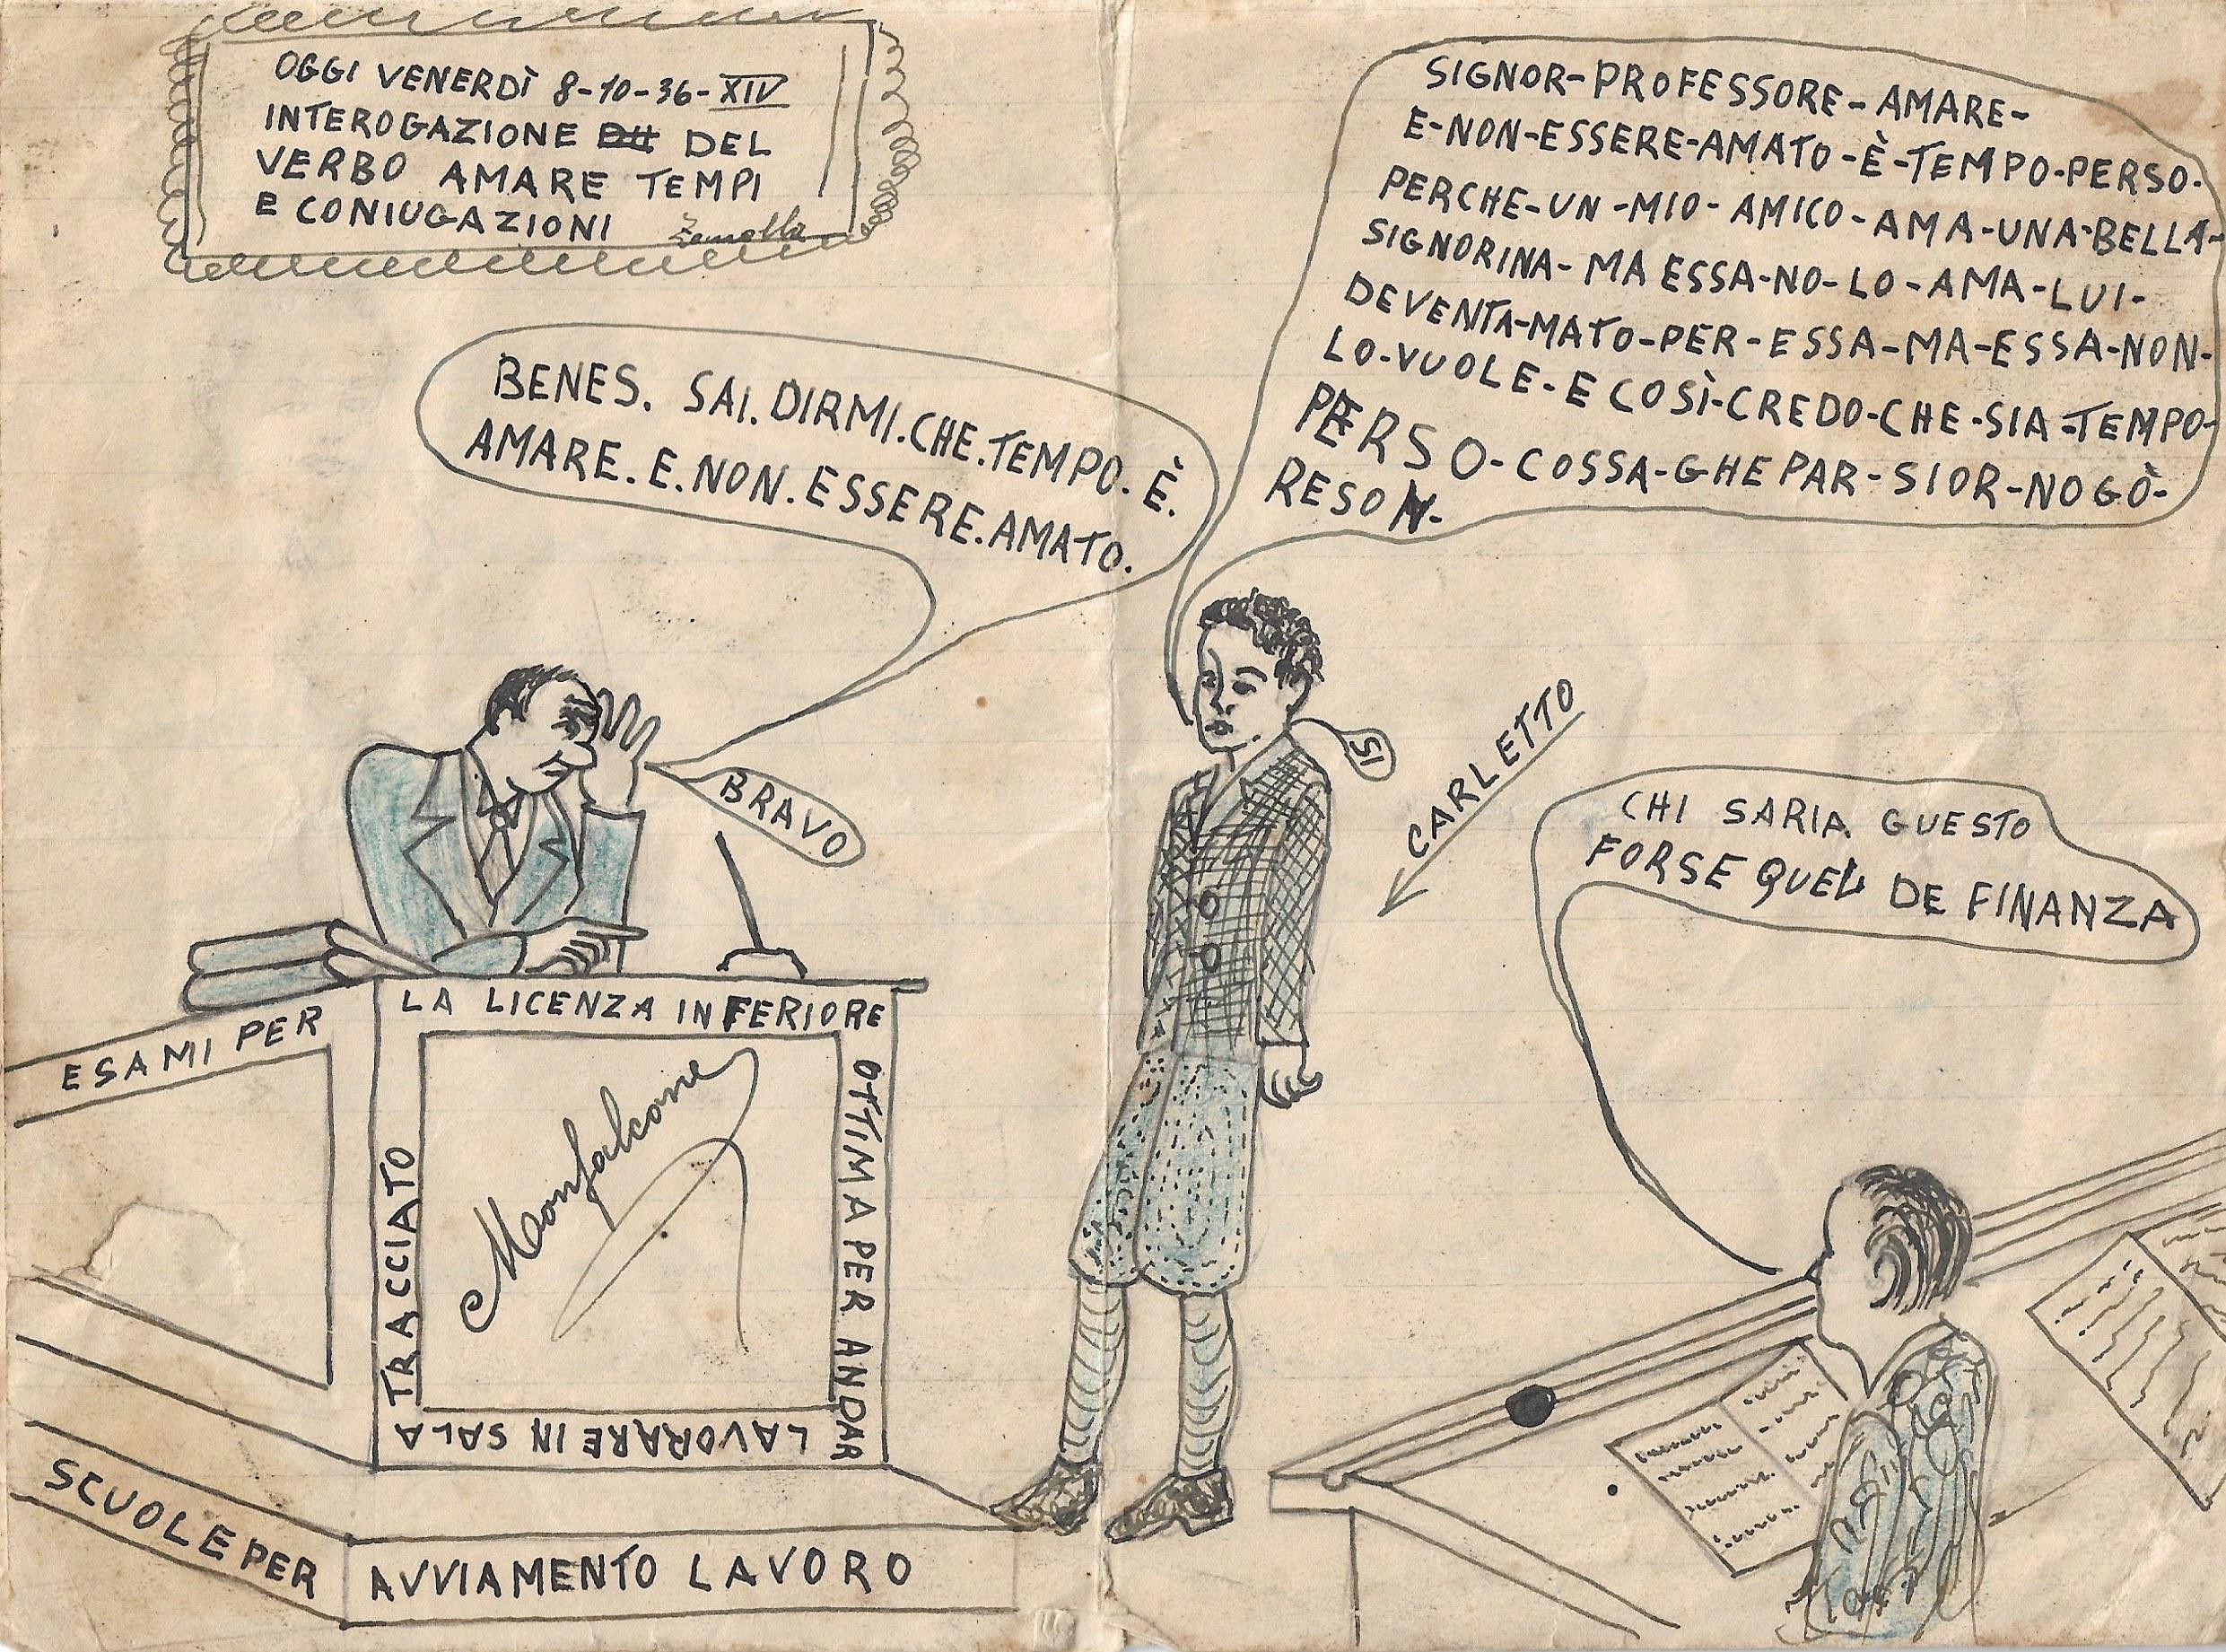 OGGI VENERDÌ 8-10-36-XIV
INTEROGAZIONE DEL
VERBO AMARE TEMPI
E CONIUGAZIONI
SIGNOR-PROFESSORE-AMARE-
E-NON-ESSERE-AMATO-È-TEMPO-PERSO-
PERCHE-UN-MIO-AMICO-AMA-UNA-BELLA-
SIGNORINA-MA ESSA-NO-LO-AMA-LUI-
DEVENTA-MATO-PER-ESSA-MA-ESSA-NON-
LO-VUOLE-E COSÌ-CREDO-CHE-SIA-TEMPO-
PERSO-COSSA-GHE PAR-SIOR-NO GÒ-
RESON-
BENES. SAI.DIRMI.CHE.TEMPO.È.
AMARE.E.NON.ESSERE.AMATO.
BRAVO
SI
CARLETTO
CHI SARIA GUESTO
FORSE QUEL DE FINANZA
ESAMI PER
LA LICENZA INFERIORE
OTTIMA PER ANDAR
LAVORARE IN SALA
TRACCIATO
Monfalcone
SCUOLE PER
AVVIAMENTO LAVORO